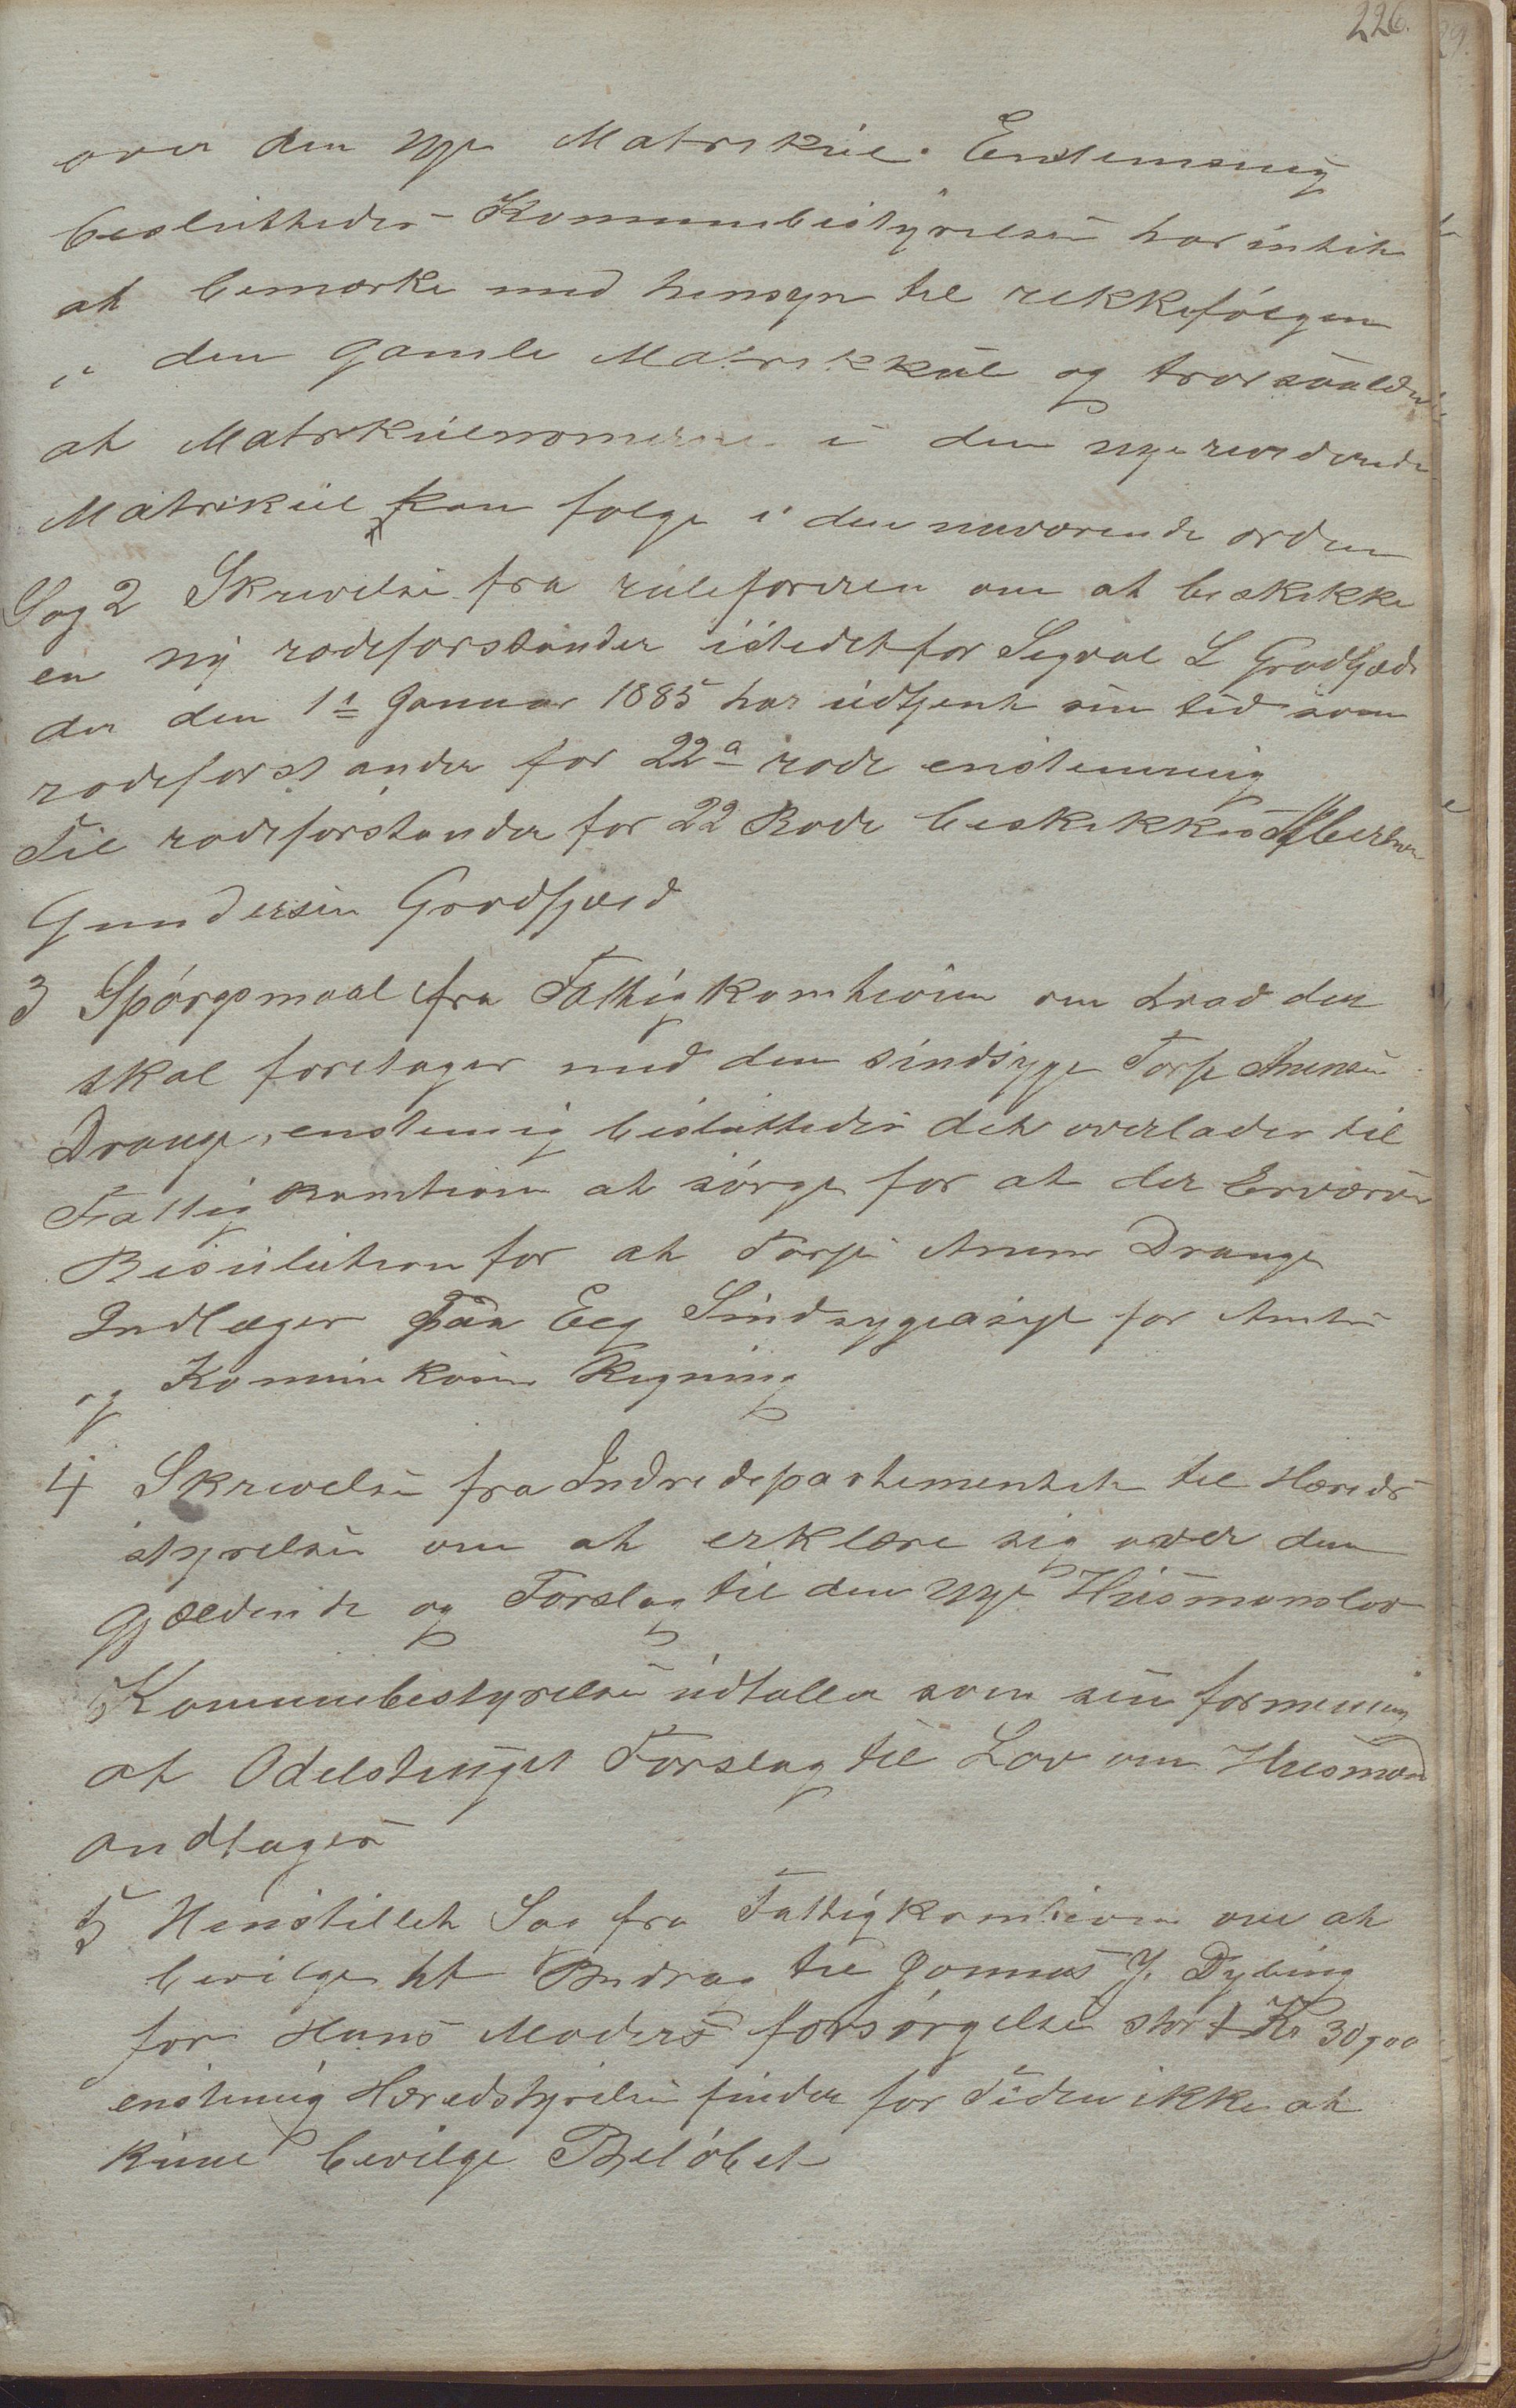 226.
over den nye Matrikul. Enstemmig
besluttedes Kommunebestyrelsen har intet
at bemærke med hensyn til rekkefølgen
i den Gamle Matrikkul og tror
at Matrikulenomerne i den nye reviderede
Matrikul kan følge i den nuværende orden
Sag 2 Skrivelse fra ruleføreren om at beskikke
en ny rodeforstander istedetfor Sigval L
der den 1ste Januar 1885 har udtjent sin tid som
rodeforstander for 22a rode enstemmig
Til rodeforstander for 22 Rode beskikkes
Gundersen
3 Spørgsmaal fra Fattigkomisionen om hvad der
skal foretages med den sindsyge Torje Anensen
Drange, enstemig besluttedes det overlades til
Fattig komtionen at sørge for at der Erværves
Resulution for at Torje Anensen Drange
Indlæges Paa Eeg Sindsygeasyl for Amtets
og Komunekasens Regning
4 Skrivelse fra Indredepartementet til Hereds
styrelsen om at erklære sig over den
gjældende og Forslag til den nye Husmanslov
Kommunebestyrelsen udtaller som sin formening
at Odelstinget Forslag til Lov om Husmæn
andtages
5 Henstillet Sag fra Fattigkomtionen om at
bevilge et Bidrag til Jonnas J. Dybing
for Hans Moders forsørgelse stort Kr 30,00
enstemig Heredstyrelsen finder for Tiden ikke at
kune bevilge Beløbet